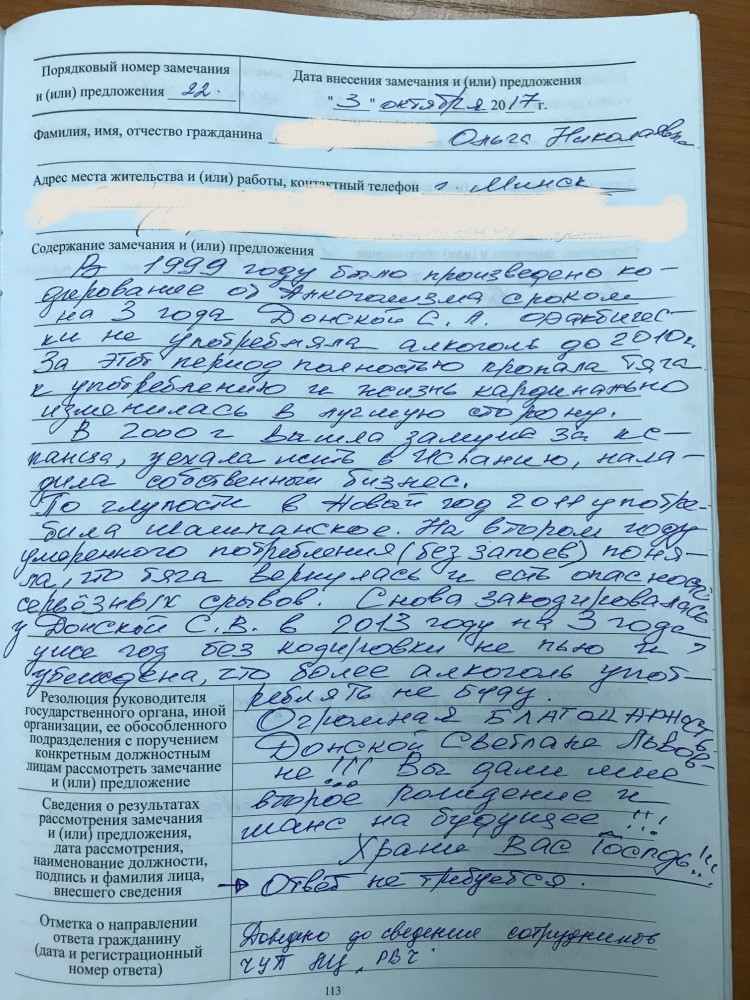 Порядковый номер замечания
и (или) предложения 22.
Дата внесения замечания и (или) предложения
"3" октября 2017 г.
Фамилия, имя, отчество гражданина Ольга Николаевна
Адрес места жительства и (или) работы, контактный телефон г. Минск
Содержание замечания и (или) предложения
В 1999 году было произведено ко-
дирование от алкоголизма сроком
на 3 года Донской С. Л. Фактичес-
ки не употребляла алкоголь до 2010г.
За этот период полностью пропала тяга
к употреблению и жизнь кардинально
изменилась в лучшую сторону.
В 2000 г вышла замуж за ис-
панца, уехала жить в Испанию, нала-
дила собственный бизнес.
По глупости в Новый год 2011 употре-
била шампанское. На втором году
умеренного потребления (без запоев) поня-
ла, что тяга вернулась и есть опасность
серьёзных срывов. Снова закодировалась
у Донской С.В. в 2013 году на 3 года
уже год без кодировки не пью и
убеждена, что более алкоголь упот-
реблять не буду.
Огромная БЛАГОДАРНОСТЬ
Донской Светлане Львов-
не !!! Вы дали мне
второе рождение и
шанс на будущее !!!
Храни ВАС Господь!!!
Резолюция руководителя
государственного органа, иной
организации, ее обособленного
подразделения с поручением
конкретным должностным
лицам рассмотреть замечание
и (или) предложение
Сведения о результатах
рассмотрения замечания
и (или) предложения,
дата рассмотрения,
наименование должности,
подпись и фамилия лица,
внесшего сведения
→ Ответ не требуется.
Отметка о направлении
ответа гражданину
(дата и регистрационный
номер ответа)
Доведено до сведения сотрудников
ЧУП МЦ
113